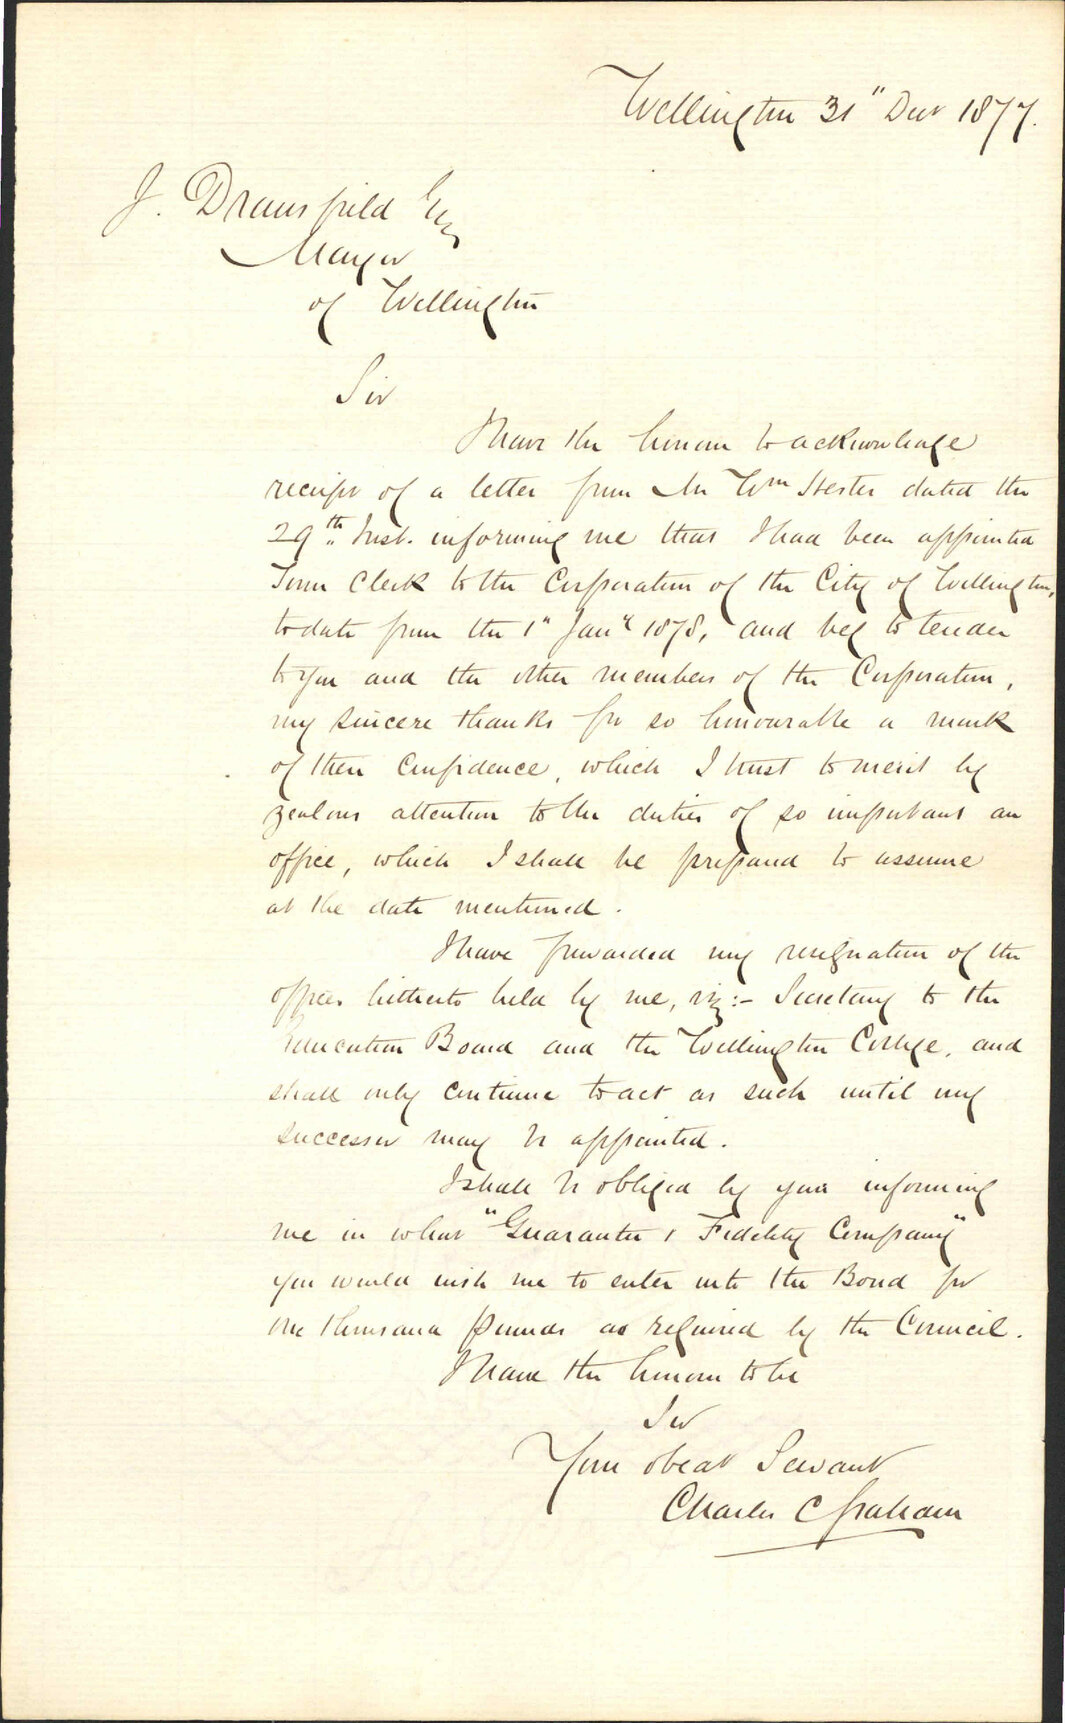 Wellington 31" Decr 1877.
J. Dransfield Esq
Mayor
of Wellington
Sir
I have the honour to acknowledge
receipt of a letter from Mr Wm Hester dated the
29th Inst. informing me that I had been appointed
Town Clerk to the Corporation of the City of Wellington,
to date from the 1" Jany 1878, and beg to tender
to you and the other members of the Corporation,
my sincere thanks for so honourable a mark
of their confidence, which I trust to merit by
zealous attention to the duties of so important an
office, which I shall be prepared to assume
at the date mentioned.
I have forwarded my resignation of the
offices hitherto held by me, viz:- Secretary to the
Education Board and the Wellington College, and
shall only continue to act as such until my
successor may be appointed.
I shall be obliged by your informing
me in what "Guarantee & Fidelity Company"
you would wish me to enter into the Bond for
one thousand pounds as required by the Council.
I have the honour to be
Sir
Your obedt Servant
Charles C Graham